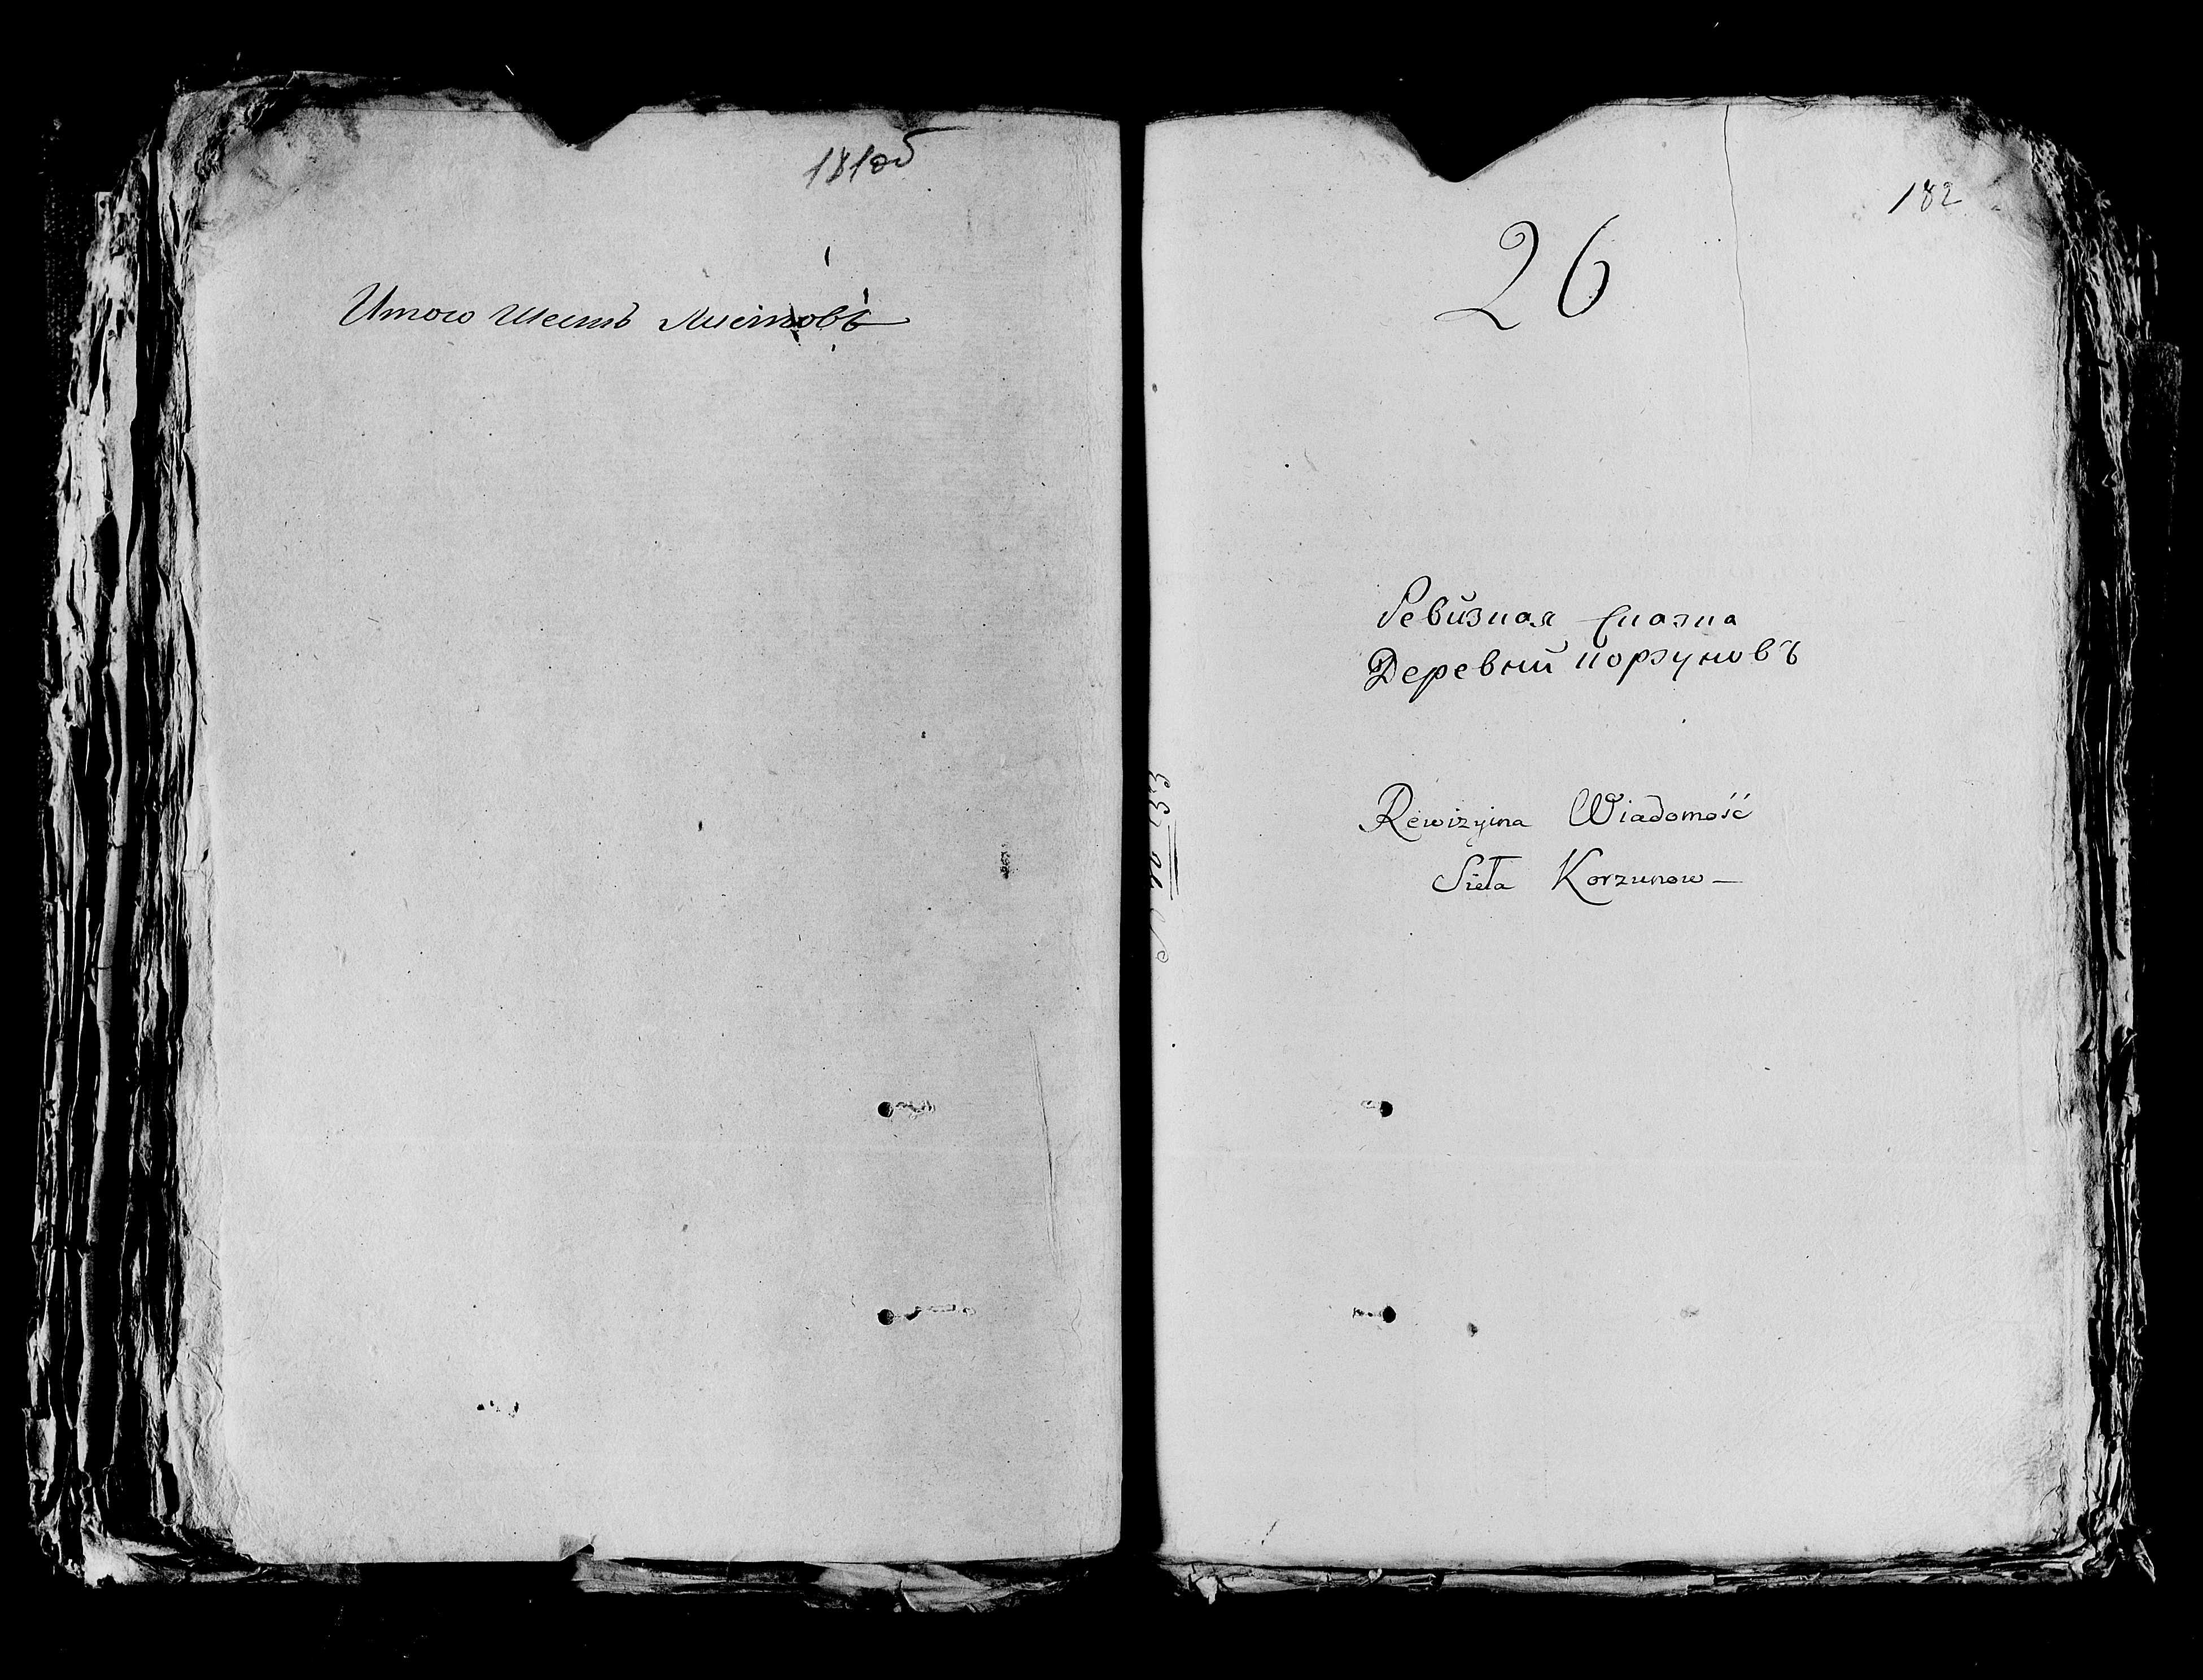 181об
Итого шесть листовъ
182
26
Ревизная Сказка
Деревни Корзуновъ
Rewizyina Wiadomość
Sieła Korzunow —